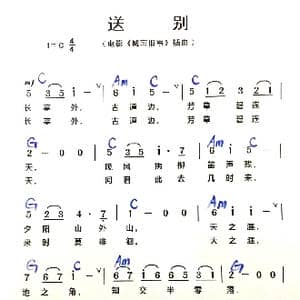 送 别
1=C 4/4 (电影《城南旧事》插曲)
mf C Am C
5 3 5 i - | 6 i 5 - | 5 1 2 3 2 1
长 亭 外, 古 道 边, 芳 草 碧 连
长 亭 外, 古 道 边, 芳 草 碧 连
G C Am
2 - 0 0 | 5 3 5 i · 7 | 6 i 5 -
天。 晚 风 拂 柳 笛 声 残,
天。 问 君 此 去 几 时 来,
G C Am
5 2 3 4 · 7 | 1 - 0 0 | 6 i i -
夕 阳 山 外 山。 天 之 涯,
来 时 莫 徘 徊。 天 之 涯,
G Am G
7 6 7 i - | 6 7 i 6 6 5 3 1 | 2 - 0 0
地 之 角, 知 交 半 零 落。